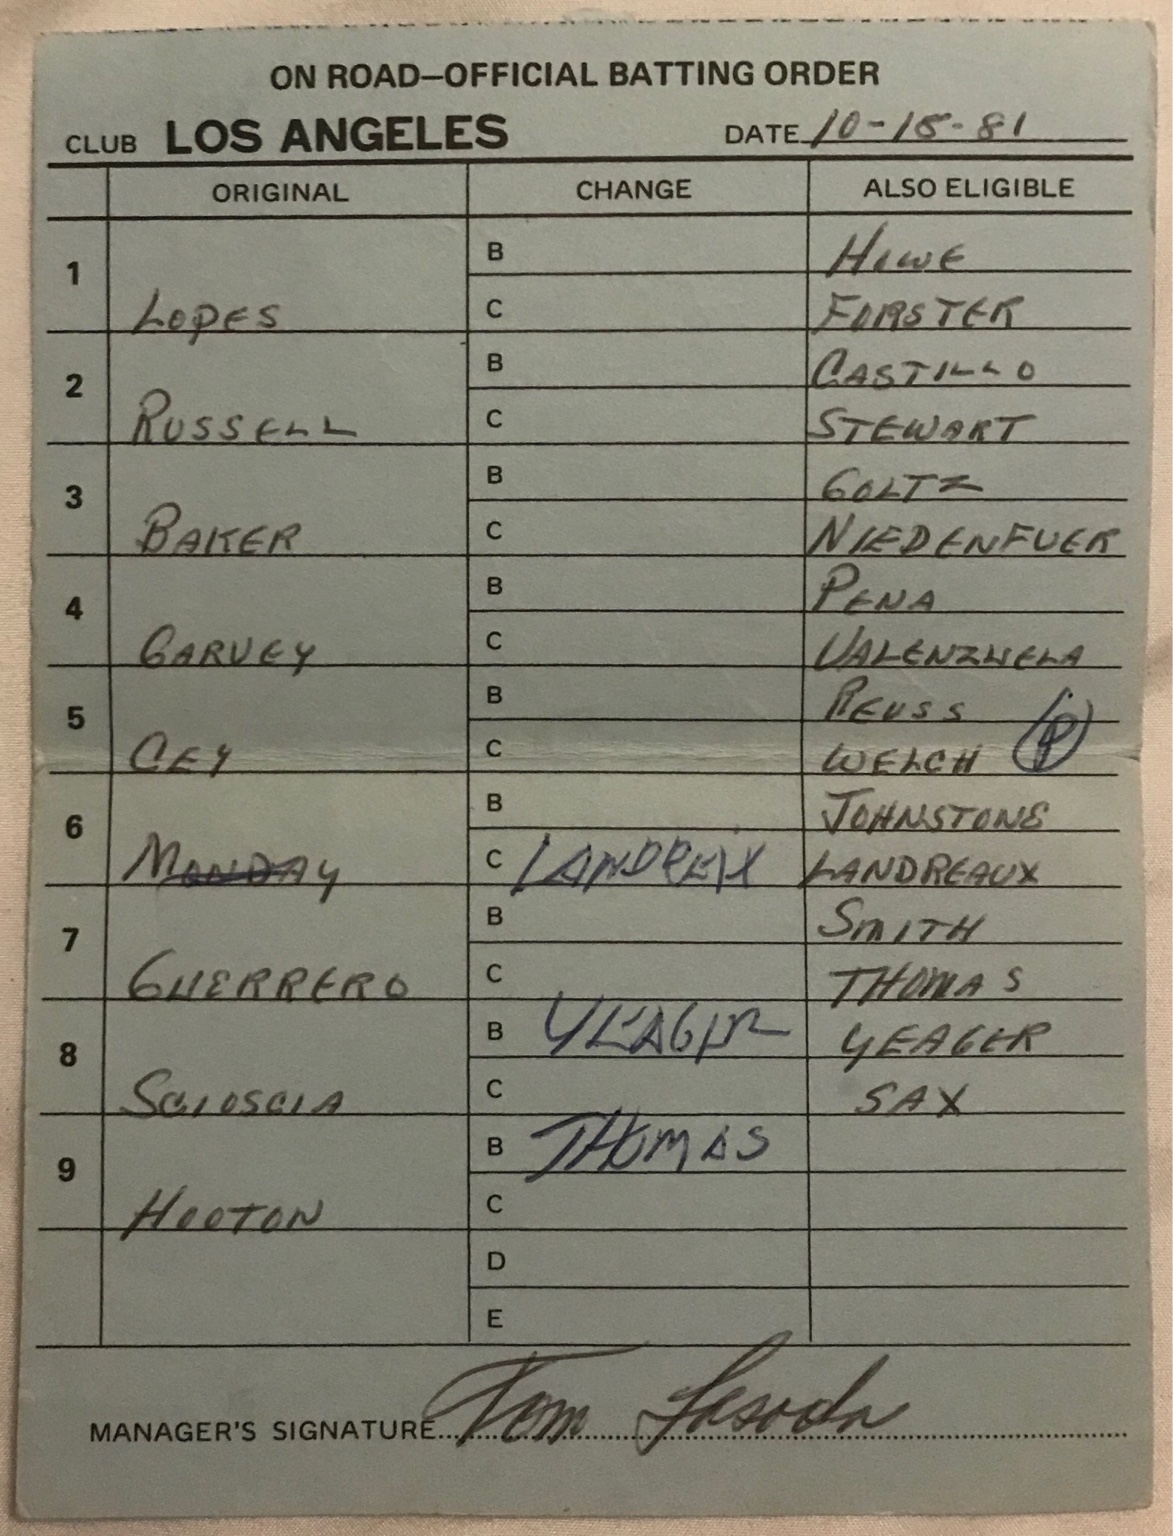 ON ROAD—OFFICIAL BATTING ORDER
CLUB LOS ANGELES DATE 10-18-81
ORIGINAL CHANGE ALSO ELIGIBLE
1 B HOWE
LOPES C FORSTER
2 B CASTILLO
RUSSELL C STEWART
3 B GOLTZ
BAKER C NIEDENFUER
4 B PENA
GARVEY C VALENZUELA
5 B REUSS
CEY C WELCH P
6 B JOHNSTONE
MONDAY C LANDREAX LANDREAUX
7 B SMITH
GUERRERO C THOMAS
8 B YEAGER YEAGER
SCIOSCIA C SAX
9 B THOMAS
HOOTON C
D
E
MANAGER'S SIGNATURE Tom Lasorda